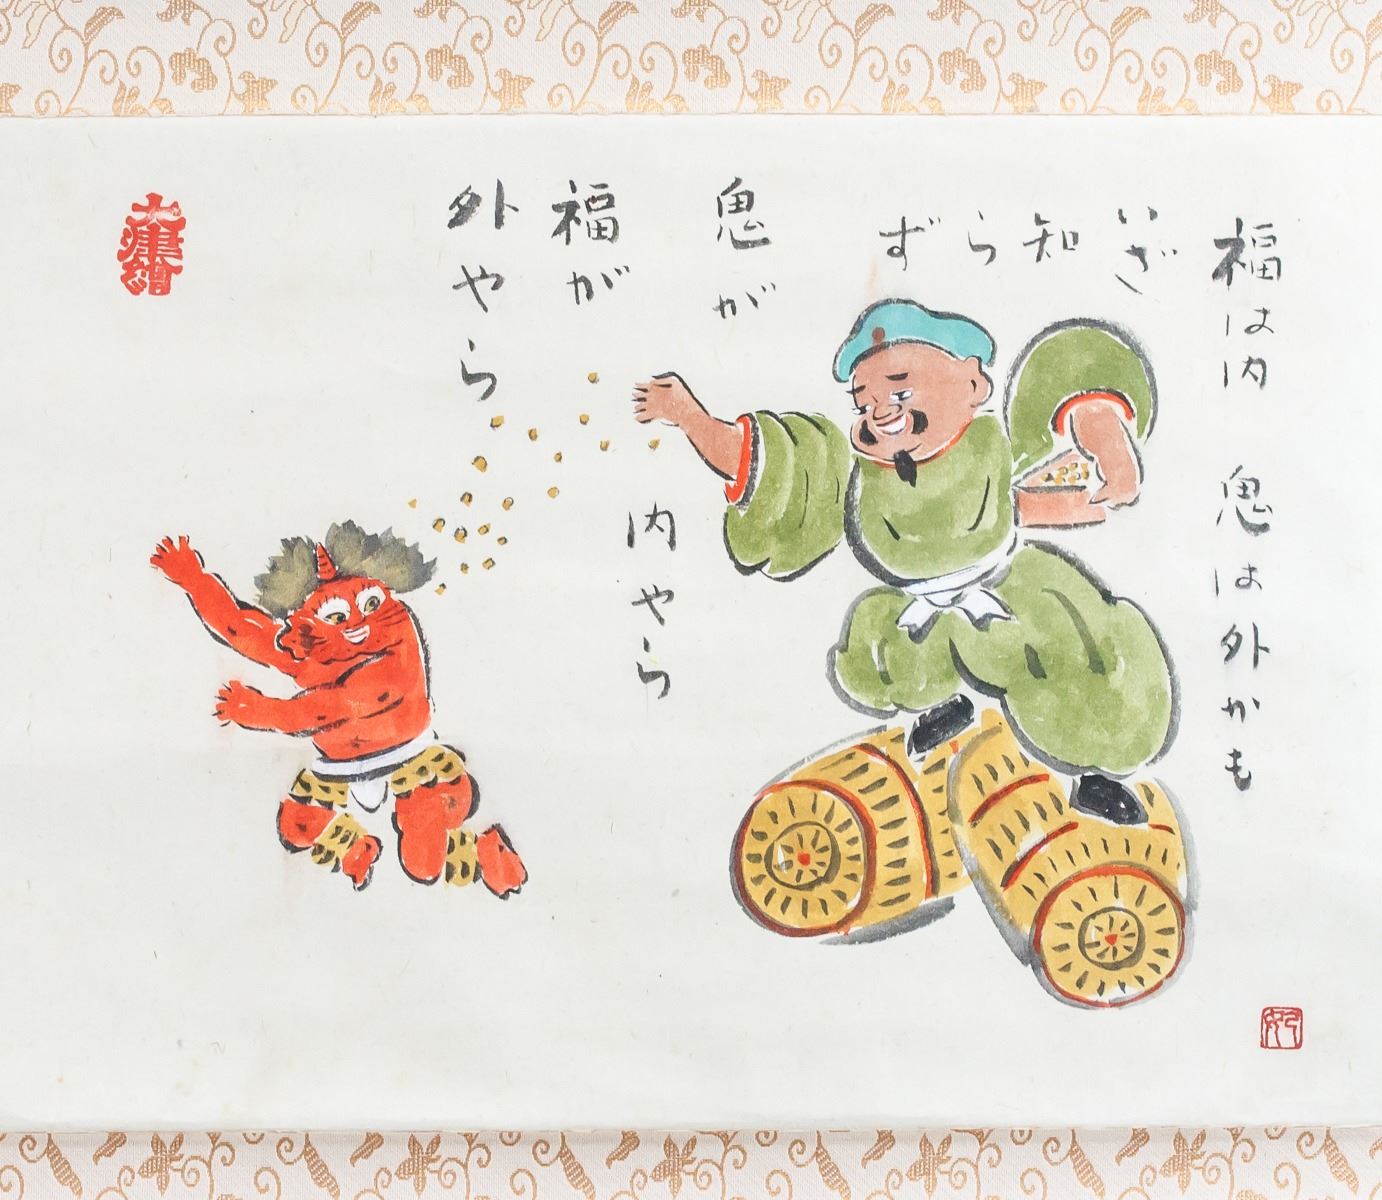 福は内 鬼は外かも
いざ
知
ら
ず
鬼が
内やら
福が
外やら
大津絵